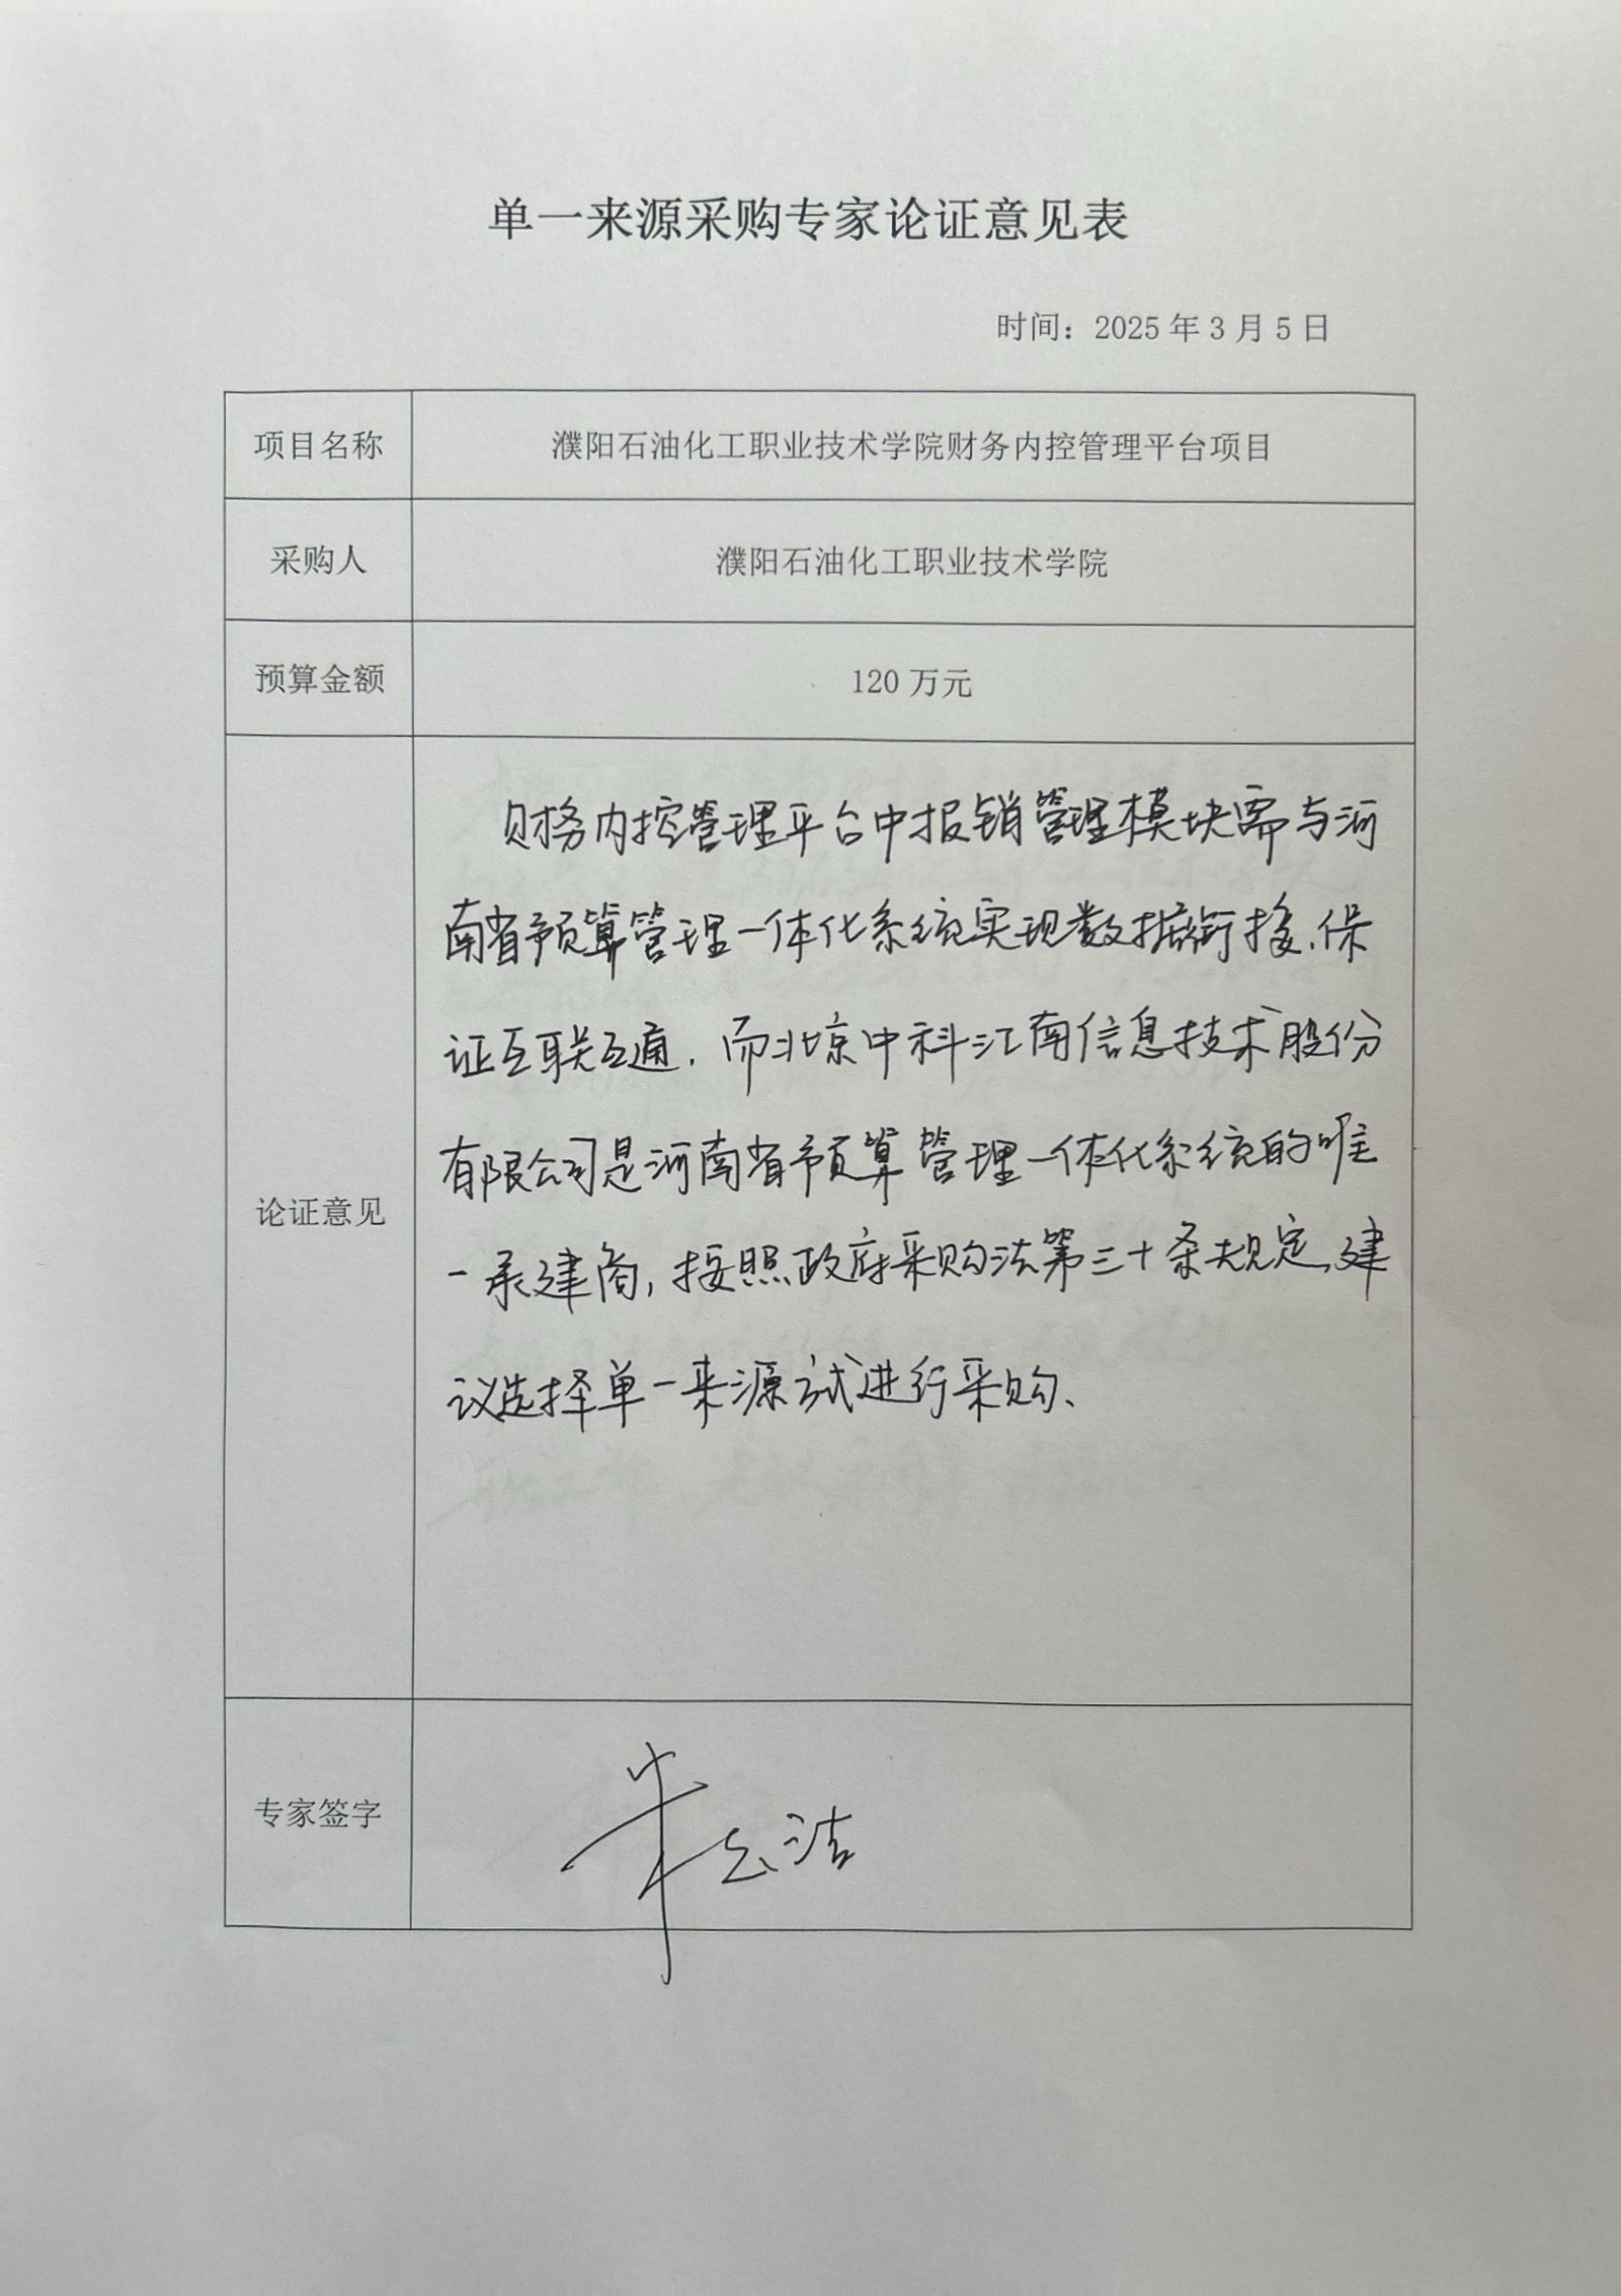 单一来源采购专家论证意见表
时间：2025 年 3 月 5 日
项目名称
濮阳石油化工职业技术学院财务内控管理平台项目
采购人
濮阳石油化工职业技术学院
预算金额
120 万元
论证意见
财务内控管理平台中报销管理模块需与河
南省预算管理一体化系统实现数据衔接、保
证互联互通. 而北京中科江南信息技术股份
有限公司是河南省预算管理一体化系统的唯
一承建商, 按照政府采购法第三十条规定、建
议选择单一来源方式进行采购、
专家签字